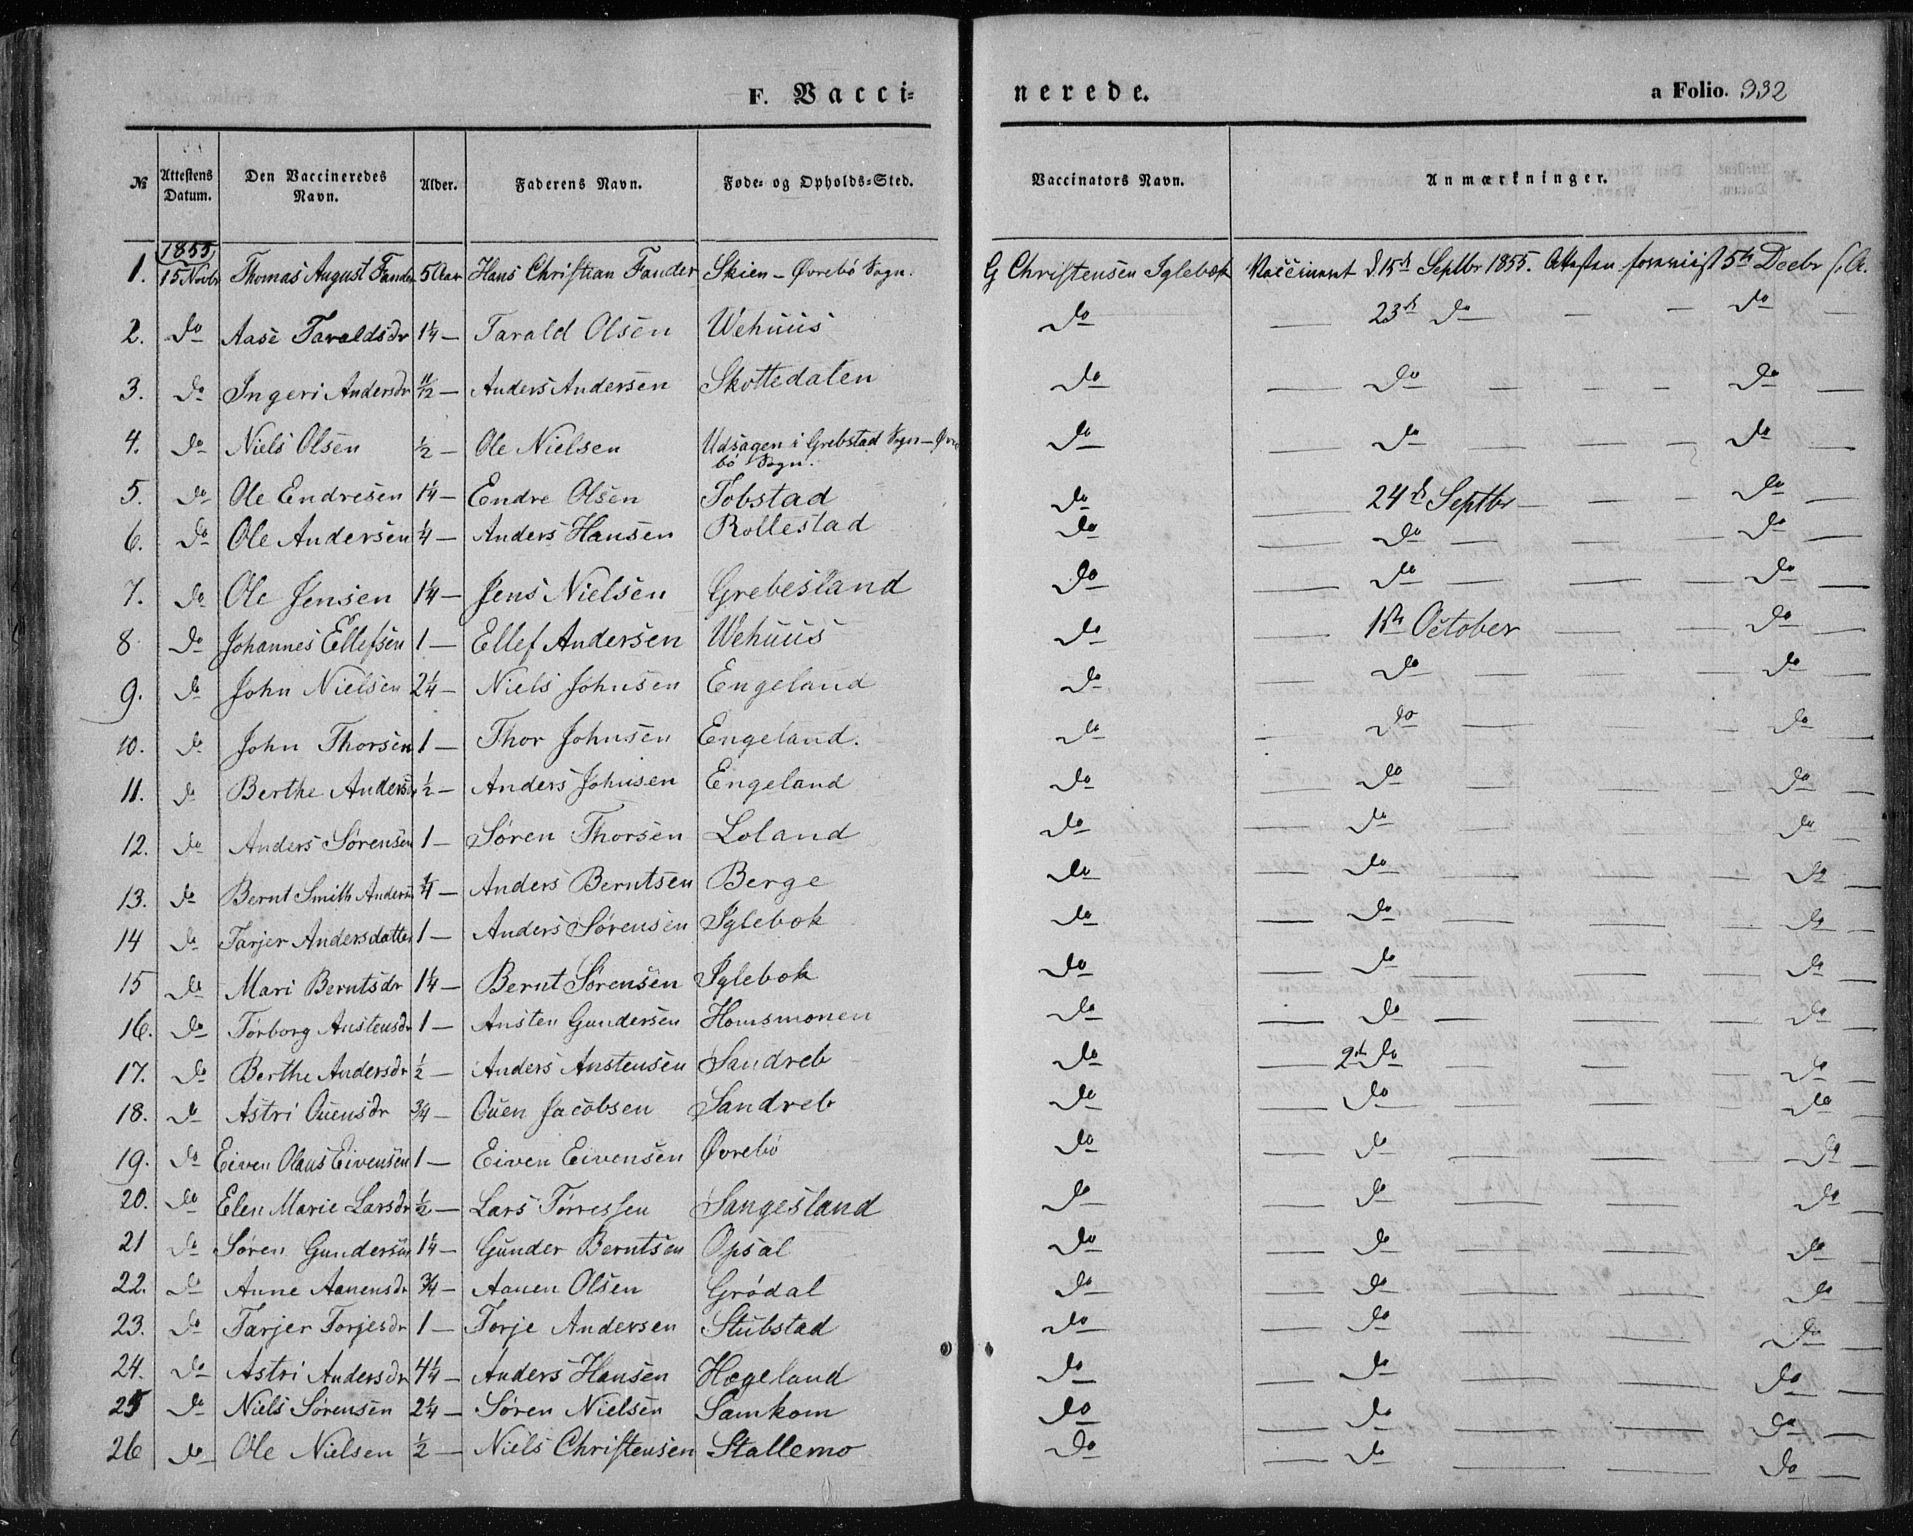 F. Vacci-nerede. a Folio. 332
№ Attestens Datum. Den Vaccineredes Navn. Alder. Faderens Navn. Føde- og Opholds-Sted. Vaccinators Navn. Anmærkninger.
1. 1855 15 Novbr Thomas August Fander 5 Aar Hans Christian Fander Skien - Øvrebö Sogn. G Christensen Iglebæk Vaccineret d. 15de Septbr 1855. Attesten foreviist 5te Decbr s.A.
2. do Aase Taraldsdr 1 1/4 — Tarald Olsen Wehuus do — 23de do — — do —
3. do Ingeri Andersdr 1/2 — Anders Andersen Skottedalen do — do — — — do —
4. do Niels Olsen 1/2 — Ole Nielsen Udsagen i Grebstad Sogn - Øvrebö Sogn. do — do — — — do
5. do Ole Endresen 1 1/4 — Endre Olsen Tobstad do — 24de Septbr — — do —
6. do Ole Andersen 1/4 — Anders Hansen Rollestad do — do — — — do —
7. do Ole Jensen 1 1/4 — Jens Nielsen Grebesland do — do — — — do —
8 do Johannes Ellefsen 1 — Ellef Andersen Wehuus do — 1ste October — — do —
9. do John Nielsen 2 1/4 — Niels Johnsen Engeland do — do — — — do —
10. do John Thorsen 1 — Thor Johnsen Engeland. do — do — — — do —
11. do Berthe Andersdr 1/2 — Anders Johnsen Engeland do — do — — — do —
12. do Anders Sørensen 1 — Søren Thorsen Loland do — do — — — do
13. do Bernt Smith Andersen 1/4 — Anders Berntsen Berge do — do — — — do —
14 do Tarjer Andersdatter 1 — Anders Sørensen Iglebok do — do — — — do —
15 do Mari Berntsdr 1 1/4 — Bernt Sørensen Iglebok do — do — — — do —
16. do Torborg Austensdr 1 — Austen Gundersen Homsmonen do — do — — — do —
17. do Berthe Andersdr 1/2 — Anders Austensen Sandreb do — 2de do — — — do —
18. do Astri Ouensdr 3/4 — Ouen Jacobsen Sandreb do — do — — — do
19. do Eiven Olaus Eivensen 1 — Eiven Eivensen Øvrebö do — do — — — do —
20. do Elen Marie Larsdr 1/2 — Lars Tørressen Sangesland do — do — — — do —
21 do Søren Gundersen 1 1/4 — Gunder Berntsen Opsal do — do — — — do —
22. do Anne Aanensdr 3/4 — Aanen Olsen Grødal do — do — — — do —
23. do Tarjer Torjesdr 1 — Torje Andersen Stubstad do — do — — — do —
24. do Astri Andersdr 4 1/4 — Anders Hansen Hægeland do — do — — — do —
25 do Niels Sørensen 2 1/4 — Søren Nielsen Samkom do — do — — — do —
26 do Ole Nielsen 1/2 — Niels Christensen Stallemo do — do — — — do —